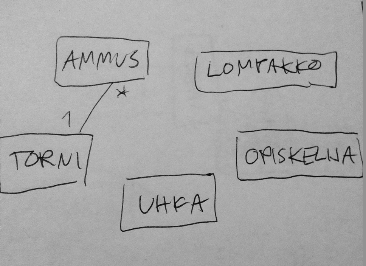 AMMUS
LOMPAKKO
*
1
TORNI
OPISKELIJA
UHKA